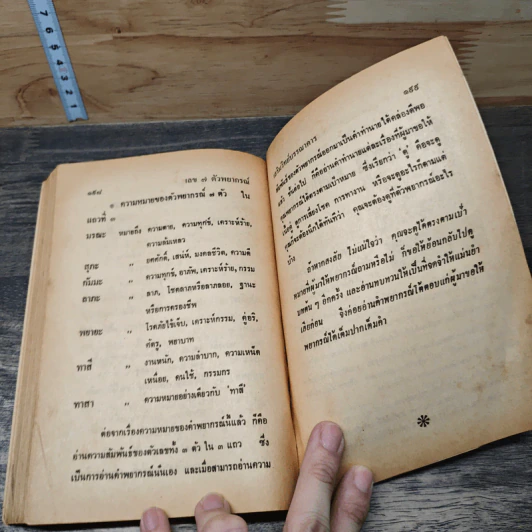 ๑๙๘
เลข ๗ ตัวพยากรณ์
ความหมายของตัวพยากรณ์ ๗ ตัว ใน
แถวที่ ๓
มรณะ หมายถึง ความตาย, ความทุกข์, เคราะห์ร้าย,
ความล้มเหลว
สุภะ " ยศศักดิ์, เสน่ห์, มงคลชีวิต, ความดี
กัมมะ " ความทุกข์, อาภัพ, เคราะห์ร้าย, กรรม
ลาภะ " ลาภ, โชคลาภหรือลาภลอย, ฐานะ
หรือการครองชีพ
พยายะ " โรคภัยไข้เจ็บ, เคราะห์กรรม, คู่อริ,
ศัตรู, พยาบาท
ทาสี " งานหนัก, ความลำบาก, ความเหน็ด
เหนื่อย, คนใช้, กรรมกร
ทาสา " ความหมายอย่างเดียวกับ 'ทาสี'
ต่อจากเรื่องความหมายของคำพยากรณ์นี้แล้ว ก็คือ
อ่านความสัมพันธ์ของตัวเลขทั้ง ๗ ตัว ใน ๓ แถว ซึ่ง
เป็นการอ่านคำพยากรณ์นั่นเอง และเมื่อสามารถอ่านความ
๑๙๙
สัมพันธ์ของคำพยากรณ์ออกมาเป็นคำทำนายได้คล่องดีพอ
แล้ว ขั้นต่อไป ก็คืออ่านคำทำนายแต่ละเรื่องที่ผู้มาขอให้
คุณพยากรณ์ได้ตรงตามเป้าหมาย ซึ่งเรียกว่า 'ดู' คือจะดู
เนื้อคู่ ดูการเสี่ยงโชค การทำงาน หรือจะดูอะไรก็ตามแต่
คุณก็จะต้องนึกได้ทันทีว่า คุณจะต้องดูที่ตัวพยากรณ์อะไร
บ้าง
ถ้าหากสงสัย ไม่แน่ใจว่า คุณจะดูได้ตรงตามเป้า
หมายที่ผู้มาให้พยากรณ์ถามหรือไม่ ก็ขอให้ย้อนกลับไปดู
บทต้น ๆ อีกครั้ง และอ่านทบทวนให้เป็นที่จดจำให้แม่นยำ
เสียก่อน จึงค่อยอ่านคำพยากรณ์ให้ตอบแก่ผู้มาขอให้
พยากรณ์ได้เต็มปากเต็มคำ